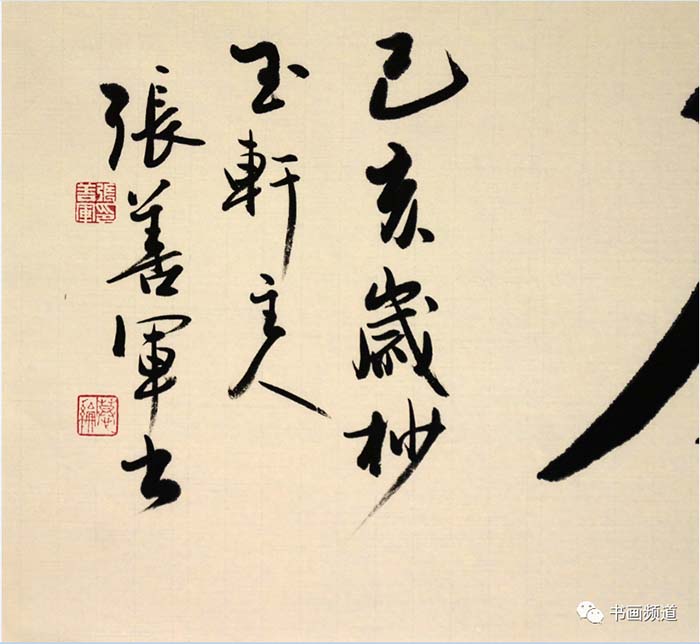 己亥歲杪
玉軒主人
張善軍书
張善軍印
书画频道